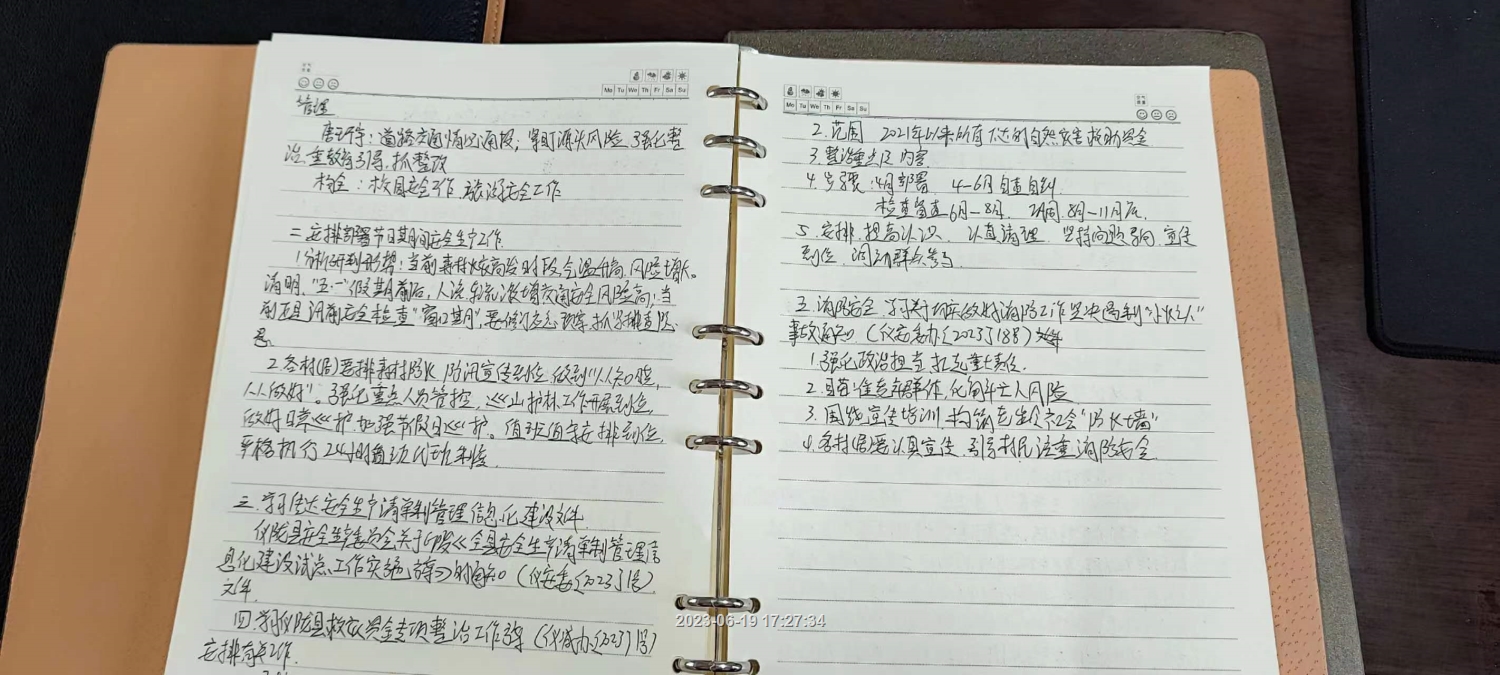 Mo Tu We Th Fr Sa Su
管理
:道路交通情况通报,紧盯源头风险,强化整
治,抓整改
:校园安全工作,安全工作
二.安排部署节日期间安全生产工作.
1.分析研判形势:当前森林火险高险时段,气温升高,风险增大。
清明、"五·一"假期前后,人流车流激增交通安全风险高;当
前正是汛前安全检查"窗口期",排查隐
患。
2.各村(居)要排森林防火、防汛宣传到位,做到"人人知晓,
人人做好"。强化重点人员管控,巡山护林工作开展到位,
做好日常巡护,加强节假日巡护。值班值守安排到位,
严格执行24小时值班制度.
三.学习传达安全生产清单制管理信息化建设文件.
仪陇县安全生产委员会关于印发《全县安全生产清单制管理信
息化建设试点工作实施方案》的通知(仪安委〔2023〕1号)
文件.
四.学习仪陇县救灾资金专项整治工作方案(仪减办〔2023〕1号)
安排有关工作.
Mo Tu We Th Fr Sa Su
2.范围 2021年以来所有下达的自然灾害救助资金
3.整治重点及内容
4.步骤:4月部署 4-6月自查自纠
检查督查6月-8月. 8月-11月底.
5.安排.提高认识 认真清理 坚持问题导向.宣传
到位,调动群众参与.
五.消防安全 学习关于切实做好消防工作坚决遏制"小火亡人"
事故通知 (仪安委办〔2023〕188)
1.强化政治担当,扛起重大责任.
2.,化解亡人风险
3.围绕宣传培训,构筑全社会"防火墙"
4.各村居要认真宣传,引导村民注重消防安全
2023-06-19 17:27:34